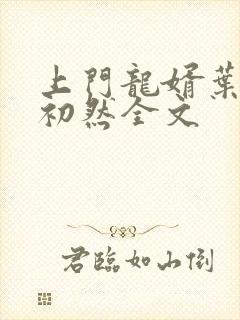 上門龍婿葉
初然全文
君臨如山倒